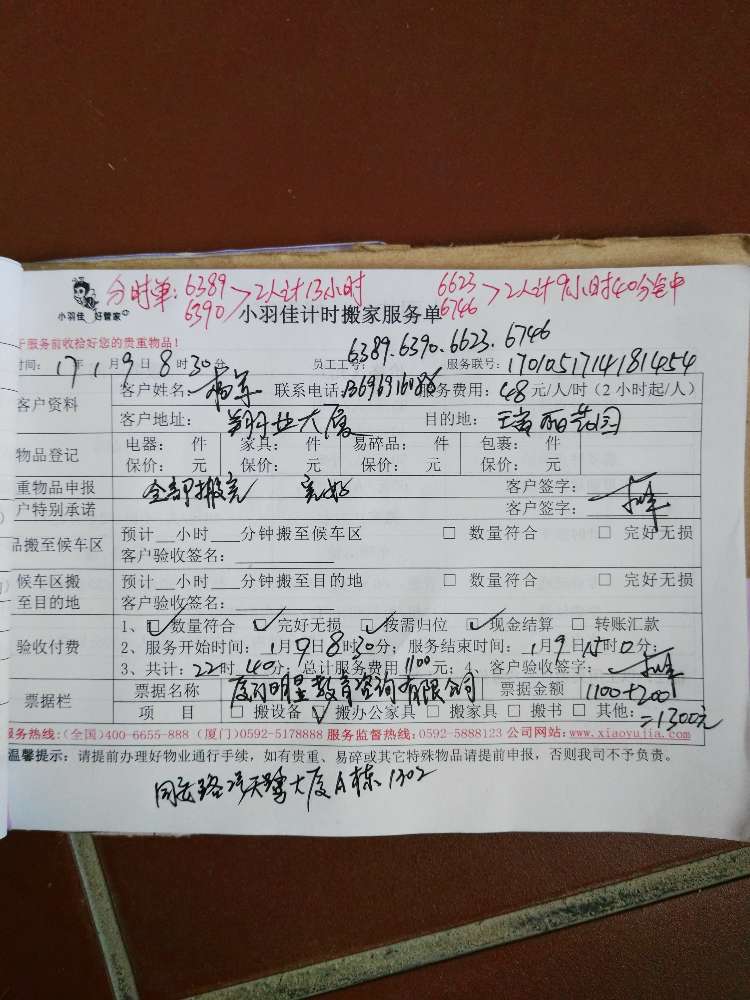 分时单: 6389 6390 >2人计13小时 6623 6746 >2人计9小时40分笔中
小羽佳 好管家
小羽佳计时搬家服务单
于服务前收拾好您的贵重物品!
时间: 17年1月9日8时30分 员工工号: 6389.6390.6623.6746 服务联号: 1701051714181454
客户资料 客户姓名: 联系电话: 服务费用: 48元/人/时(2小时起/人)
客户地址: 翔业大厦 目的地: 瑞丽花园
物品登记 电器: 件 家具: 件 易碎品: 件 包裹: 件
保价: 元 保价: 元 保价: 元 保价: 元
重物品申报 全部搬完 完好 客户签字:
户特别承诺 客户签字:
品搬至候车区 预计__小时___分钟搬至候车区 □ 数量符合 □ 完好无损
客户验收签名:
候车区搬至目的地 预计__小时___分钟搬至目的地 □ 数量符合 □ 完好无损
客户验收签名:
验收付费 1、☑数量符合 ☑完好无损 ☑按需归位 ☑现金结算 □ 转账汇款
2、服务开始时间: 1月9日8时30分; 服务结束时间: 1月9日15时10分;
3、共计: 22时40分; 总计服务费用1100元; 4、客户验收签字:
票据栏 票据名称 厦门明星教育咨询有限公司 票据金额 1100+200
项 目 □ 搬设备 ☑ 搬办公家具 □ 搬家具 □ 搬书 □ 其他: =1300元
服务热线:(全国)400-6655-888 (厦门)0592-5178888 服务监督热线:0592-5888123 公司网站:www.xiaoyujia.com
温馨提示: 请提前办理好物业通行手续, 如有贵重、易碎或其它特殊物品请提前申报, 否则我司不予负责。
大厦A栋1302